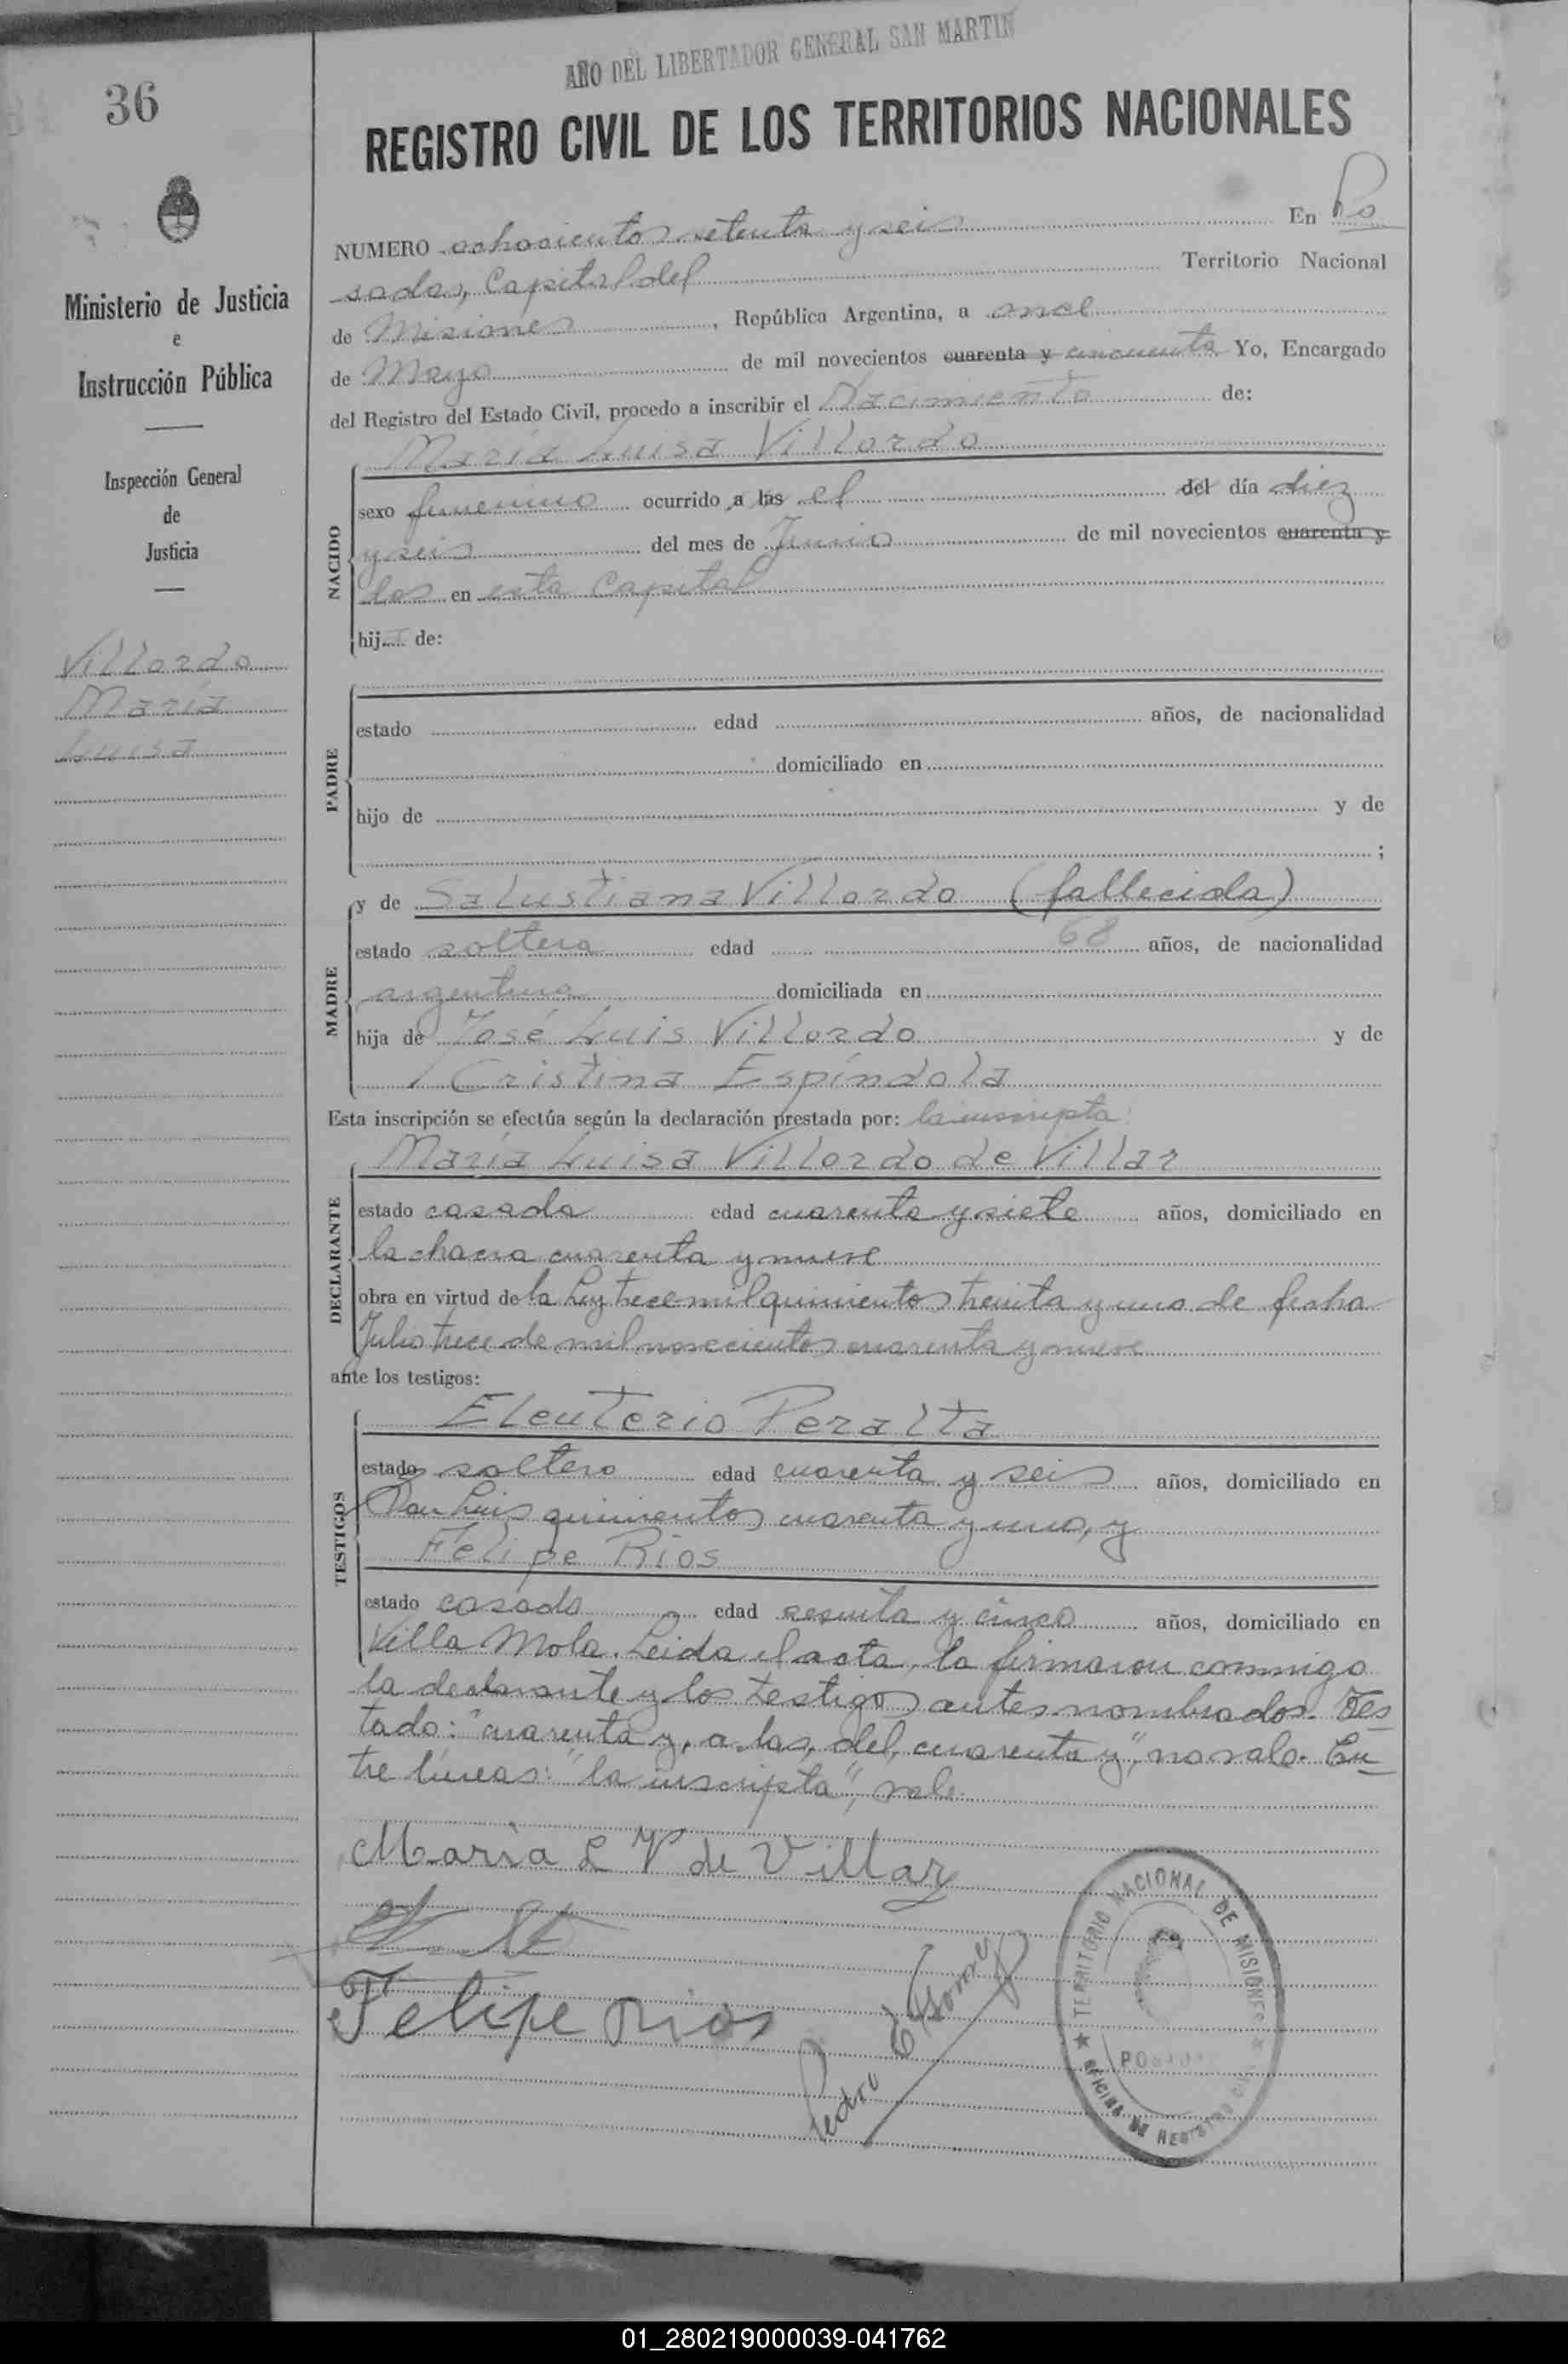 AÑO DEL LIBERTADOR GENERAL SAN MARTIN
36
REGISTRO CIVIL DE LOS TERRITORIOS NACIONALES
Ministerio de Justicia
e
Instrucción Pública
Inspección General
de
Justicia
Villordo
María
Luisa
NUMERO ochocientos setenta y seis En Po
sadas, Capital del Territorio Nacional
de Misiones, República Argentina, a once
de Mayo de mil novecientos cuarenta y cincuenta Yo, Encargado
del Registro del Estado Civil, procedo a inscribir el Nacimiento de:
María Luisa Villordo
NACIDO
sexo femenino ocurrido a las el del día diez
y seis del mes de Junio de mil novecientos cuarenta y
dos en esta Capital
hija de:
PADRE
estado edad años, de nacionalidad
domiciliado en
hijo de y de
;
MADRE
y de Salustiana Villordo (fallecida)
estado soltera edad 68 años, de nacionalidad
argentina domiciliada en
hija de José Luis Villordo y de
Cristina Espíndola
Esta inscripción se efectúa según la declaración prestada por: la inscripta:
DECLARANTE
María Luisa Villordo de Villar
estado casada edad cuarenta y siete años, domiciliado en
la chacra cuarenta y nueve
obra en virtud de la Ley trece mil quinientos treinta y uno de fecha
Julio trece de mil novecientos cuarenta y nueve
ante los testigos:
TESTIGOS
Eleuterio Peralta
estado soltero edad cuarenta y seis años, domiciliado en
San Luis quinientos cuarenta y uno, y
Felipe Rios
estado casado edad sesenta y cinco años, domiciliado en
Villa Mola. Leida el acta, la firmaron conmigo
la declarante y los testigos antes nombrados. Tes
tado: "cuarenta y, a las, del, cuarenta y", no vale. En
tre líneas: "la inscripta", vale.
María L V de Villar
Felipe Rios
Pedro
TERRITORIO NACIONAL DE MISIONES
POSADAS
OFICINA DE REGISTRO CIVIL
01_280219000039-041762